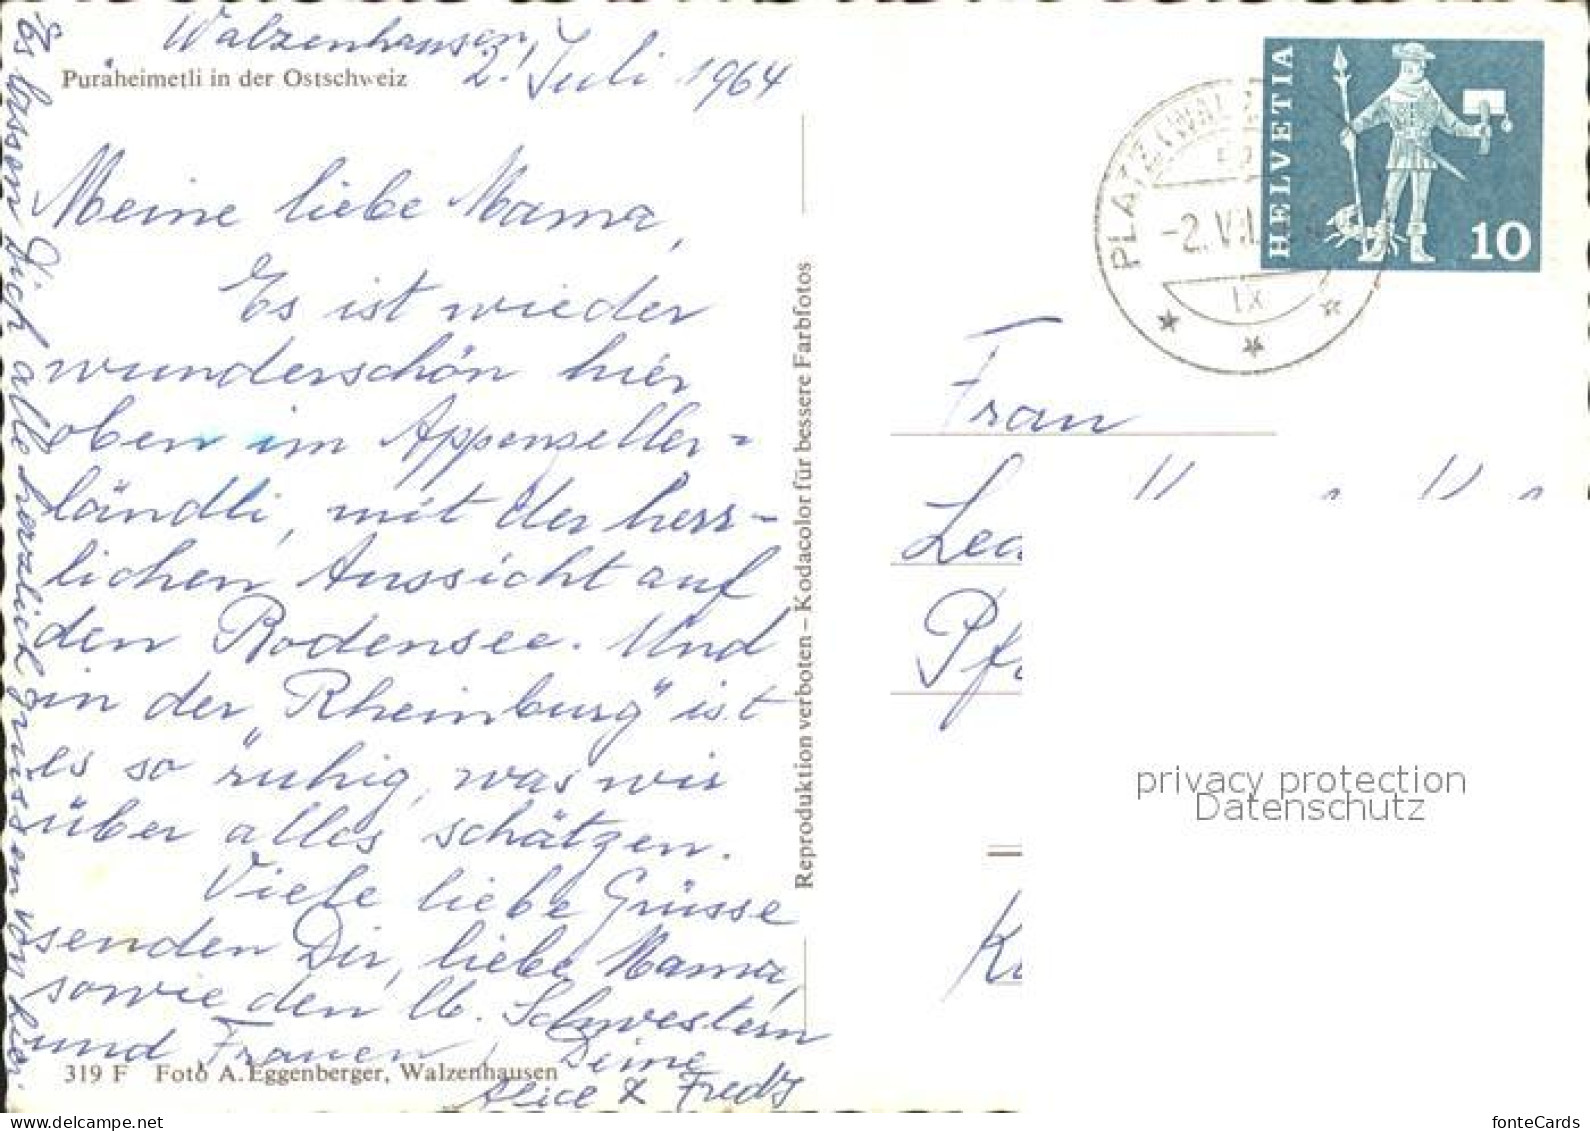 Walzenhausen,
2. Juli 1964
Puräheimetli in der Ostschweiz
Meine liebe Mama,
Es ist wieder
wunderschön hier
oben im Appenzeller-
ländli, mit der herr-
lichen Aussicht auf
den Bodensee. Und
in der "Rheinburg" ist
es so ruhig, was wir
über alles schätzen.
Viele liebe Grüsse
senden Dir, liebe Mama,
sowie den lb. Schwestern
und Frauen, Deine
Alice & Fredy
319 F Foto A. Eggenberger, Walzenhausen
Es lassen Dich alle herzlich grüssen von hier.
Reproduktion verboten – Kodacolor für bessere Farbfotos
HELVETIA
10
PLATZ (WAL
-2. VII.
IX
Frau
privacy protection
Datenschutz
fonteCards